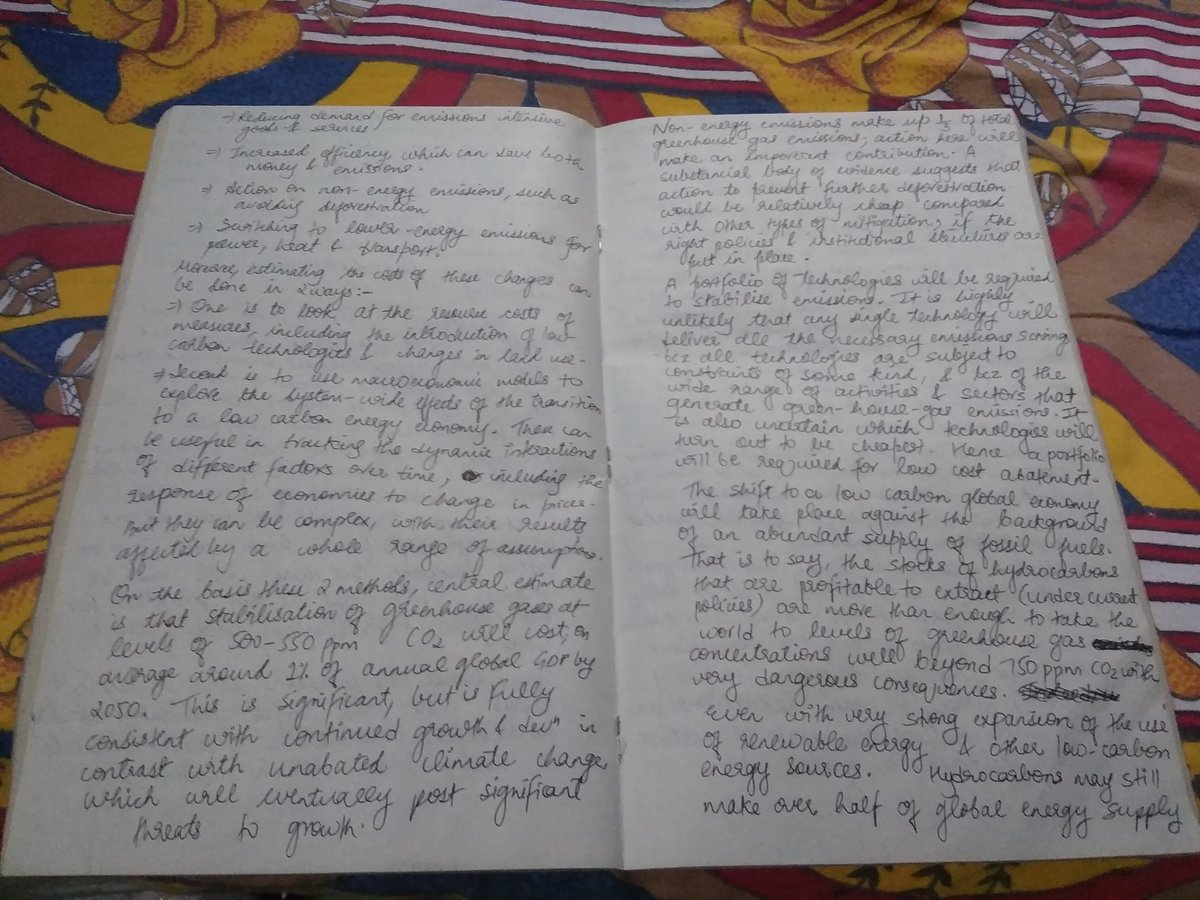 ⇒ Reducing demand for emissions intensive
goods & services
⇒ Increased efficency, which can save both
money & emissions.
⇒ Action on non-energy emissions, such as
avoiding deforestration
⇒ Switching to lower-energy emissions for
power, heat & transport.
Moreover, estimating the costs of these changes can
be done in 2 ways:-
⇒ One is to look at the resource costs of
measures, including the introduction of low
carbon technologies & changes in land use.
⇒ Second is to use macroeconomic models to
explore the system-wide effects of the transition
to a low carbon energy economy. These can
be useful in tracking the dynamic interactions
of different factors over time, including the
response of economies to change in prices.
But they can be complex, with their results
affected by a whole range of assumptions.
On the basis these 2 methods, central estimate
is that stabilisation of greenhouse gases at
levels of 500-550 ppm CO2 will cost, on
average around 1% of annual global GDP by
2050. This is significant, but is fully
consistent with continued growth & devⁿ in
contrast with unabated climate change,
which will eventually post significant
threats to growth.
Non-energy emissions make up 1/3 of total
greenhouse gas emissions; action here will
make an important contribution. A
substantial body of evidence suggests that
action to prevent further deforestration
would be relatively cheap compared
with other types of mitigation, if the
right policies & institutional structures are
put in place.
A portfolio of technologies will be required
to stabilise emissions. It is highly
unlikely that any single technology will
deliver all the necessary emissions saving
bcz all technologies are subject to
constraints of some kind, & bcz of the
wide range of activities & sectors that
generate green-house-gas emissions. It
is also uncertain which technologies will
turn out to be cheapest. Hence a portfolio
will be required for low cost abatement.
The shift to a low carbon global economy
will take place against the background
of an abundant supply of fossil fuels.
That is to say, the stocks of hydrocarbons
that are profitable to extract (under current
policies) are more than enough to take the
world to levels of greenhouse gas
concentrations well beyond 750 ppm CO2 with
very dangerous consequences.
Even with very strong expansion of the use
of renewable energy & other low-carbon
energy sources. Hydrocarbons may still
make over half of global energy supply